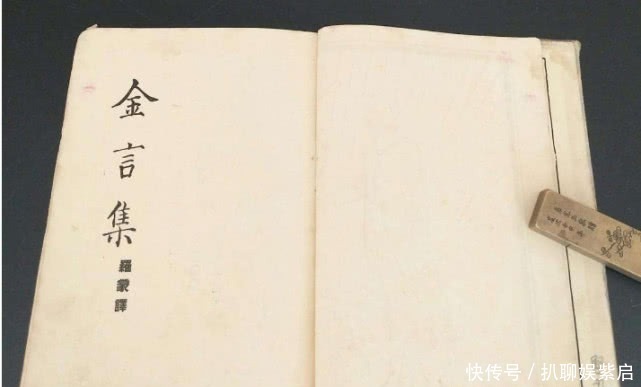 金言集
羅蒙譯
快传号/扒聊娱紫启